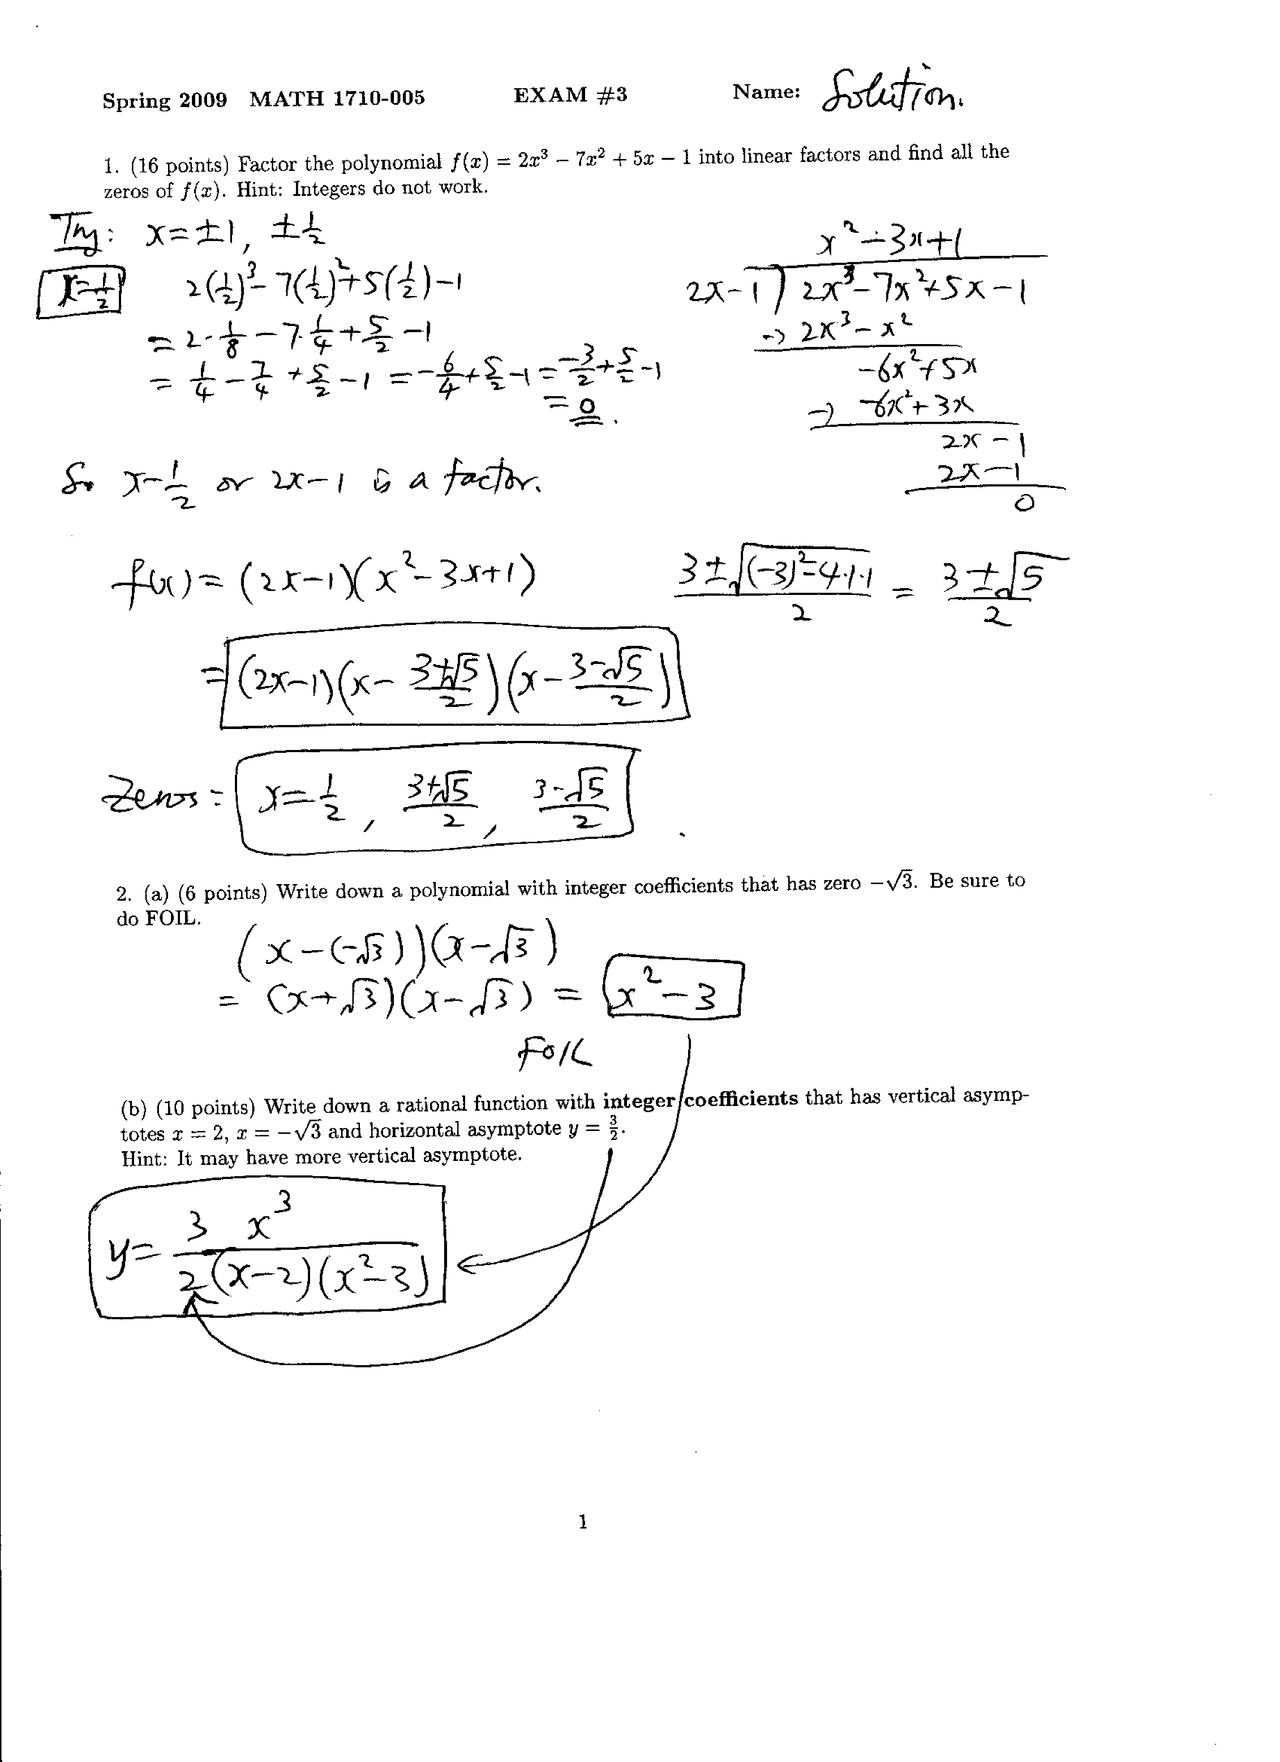 Spring 2009 MATH 1710-005 EXAM #3 Name: Solution.
1. (16 points) Factor the polynomial f(x) = 2x³ − 7x² + 5x − 1 into linear factors and find all the
zeros of f(x). Hint: Integers do not work.
Try: x = ±1, ±1/2
x = 1/2 2(1/2)³ − 7(1/2)² + 5(1/2) − 1
= 2·1/8 − 7·1/4 + 5/2 − 1
= 1/4 − 7/4 + 5/2 − 1 = −6/4 + 5/2 − 1 = −3/2 + 5/2 − 1
= 0.
x² − 3x + 1
2x − 1 ) 2x³ − 7x² + 5x − 1
-) 2x³ − x²
−6x² + 5x
-) −6x² + 3x
2x − 1
2x − 1
0
So x − 1/2 or 2x − 1 is a factor.
f(x) = (2x−1)(x² − 3x + 1)
3 ± √((−3)² − 4·1·1) / 2 = 3 ± √5 / 2
= (2x−1)(x − 3+√5/2)(x − 3−√5/2)
Zeros = x = 1/2, 3+√5/2, 3−√5/2
2. (a) (6 points) Write down a polynomial with integer coefficients that has zero −√3. Be sure to
do FOIL.
(x − (−√3))(x − √3)
= (x + √3)(x − √3) = x² − 3
FOIL
(b) (10 points) Write down a rational function with integer coefficients that has vertical asymp-
totes x = 2, x = −√3 and horizontal asymptote y = 3/2.
Hint: It may have more vertical asymptote.
y = 3 x³ / 2(x−2)(x²−3)
1